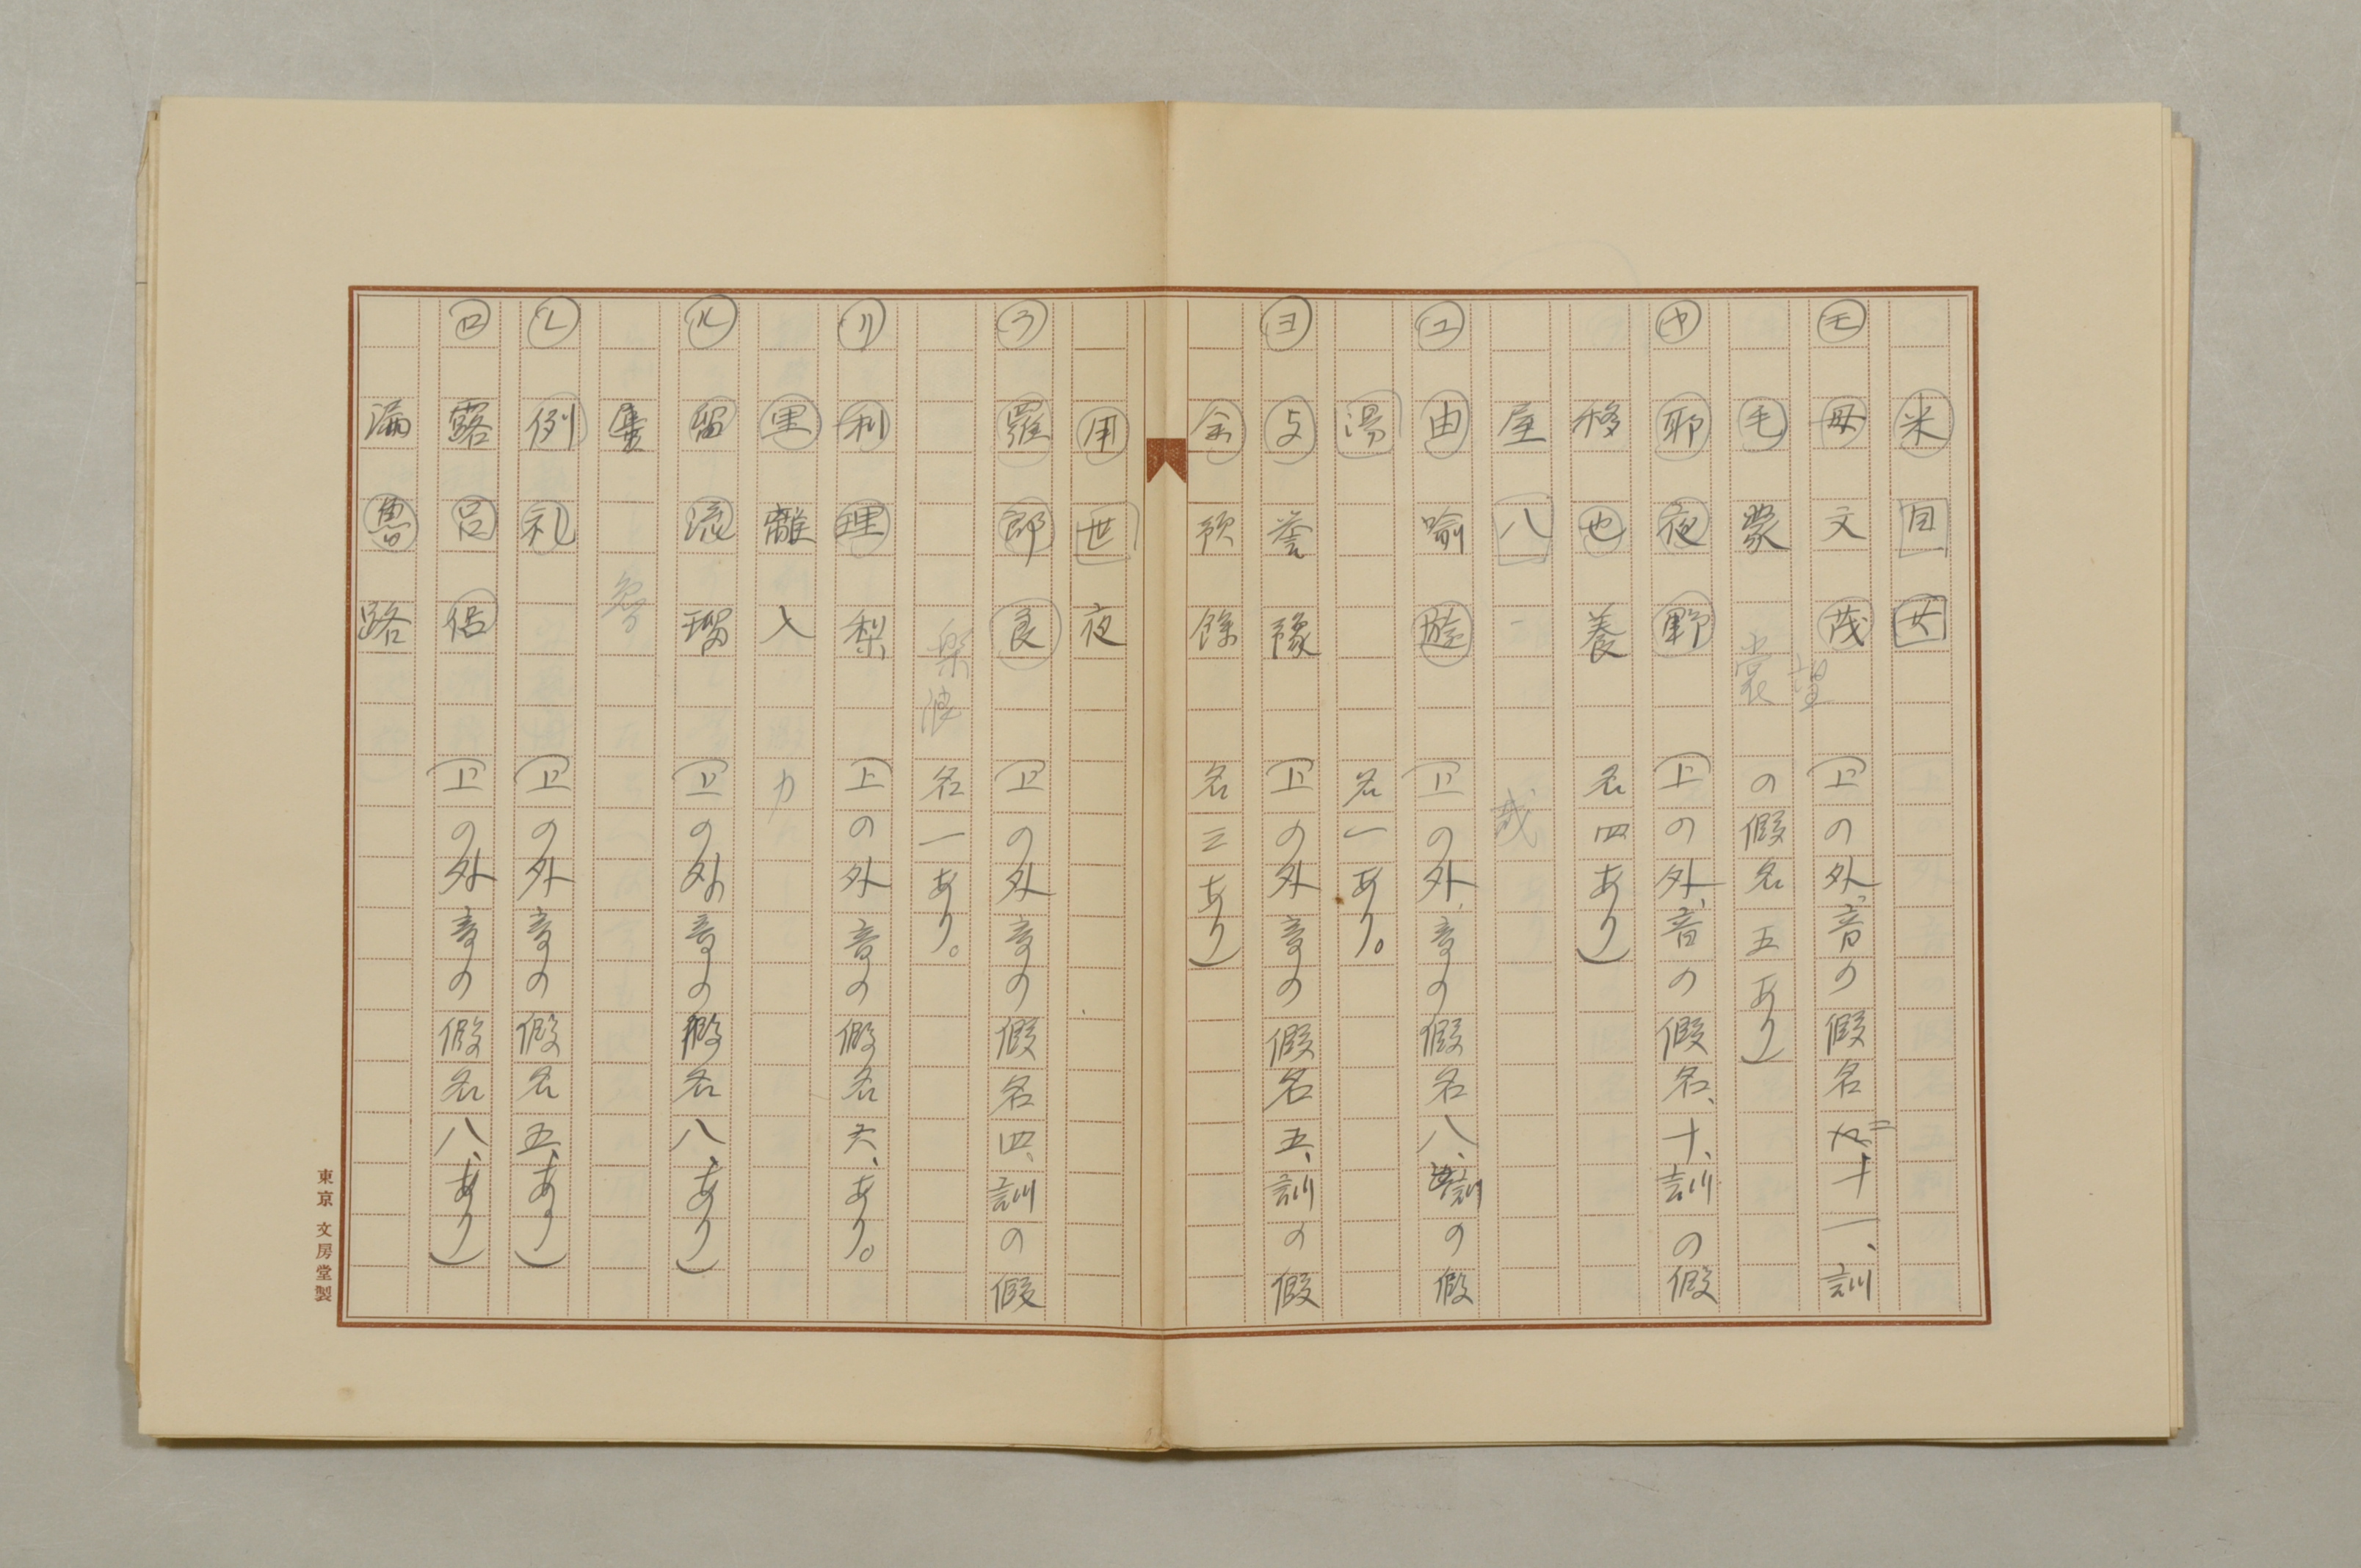 米 目 女
モ 母 文 茂 (上の外、音の假名十一、訓
毛 蒙 裳 望 の假名五あり)
ヤ 耶 夜 野 (上の外、音の假名、十、訓の假
移 也 養 名四あり)
屋 八 哉
ユ 由 喩 遊 (上の外、音の假名八、訓の假
湯 名一あり。
ヨ 与 誉 豫 (上の外音の假名五、訓の假
余 預 餘 名三あり)
用 世 夜
ラ 羅 郎 良 (上の外音の假名四、訓の假
楽 浪 名一あり。
リ 利 理 梨 (上の外音の假名六、あり。
里 離 入 力
ル 留 流 瑠 (上の外音の假名八、あり)
婁
レ 例 礼 (上の外音の假名五、あり)
ロ 露 呂 侶 (上の外音の假名八、あり)
漏 路
東京 文房堂製